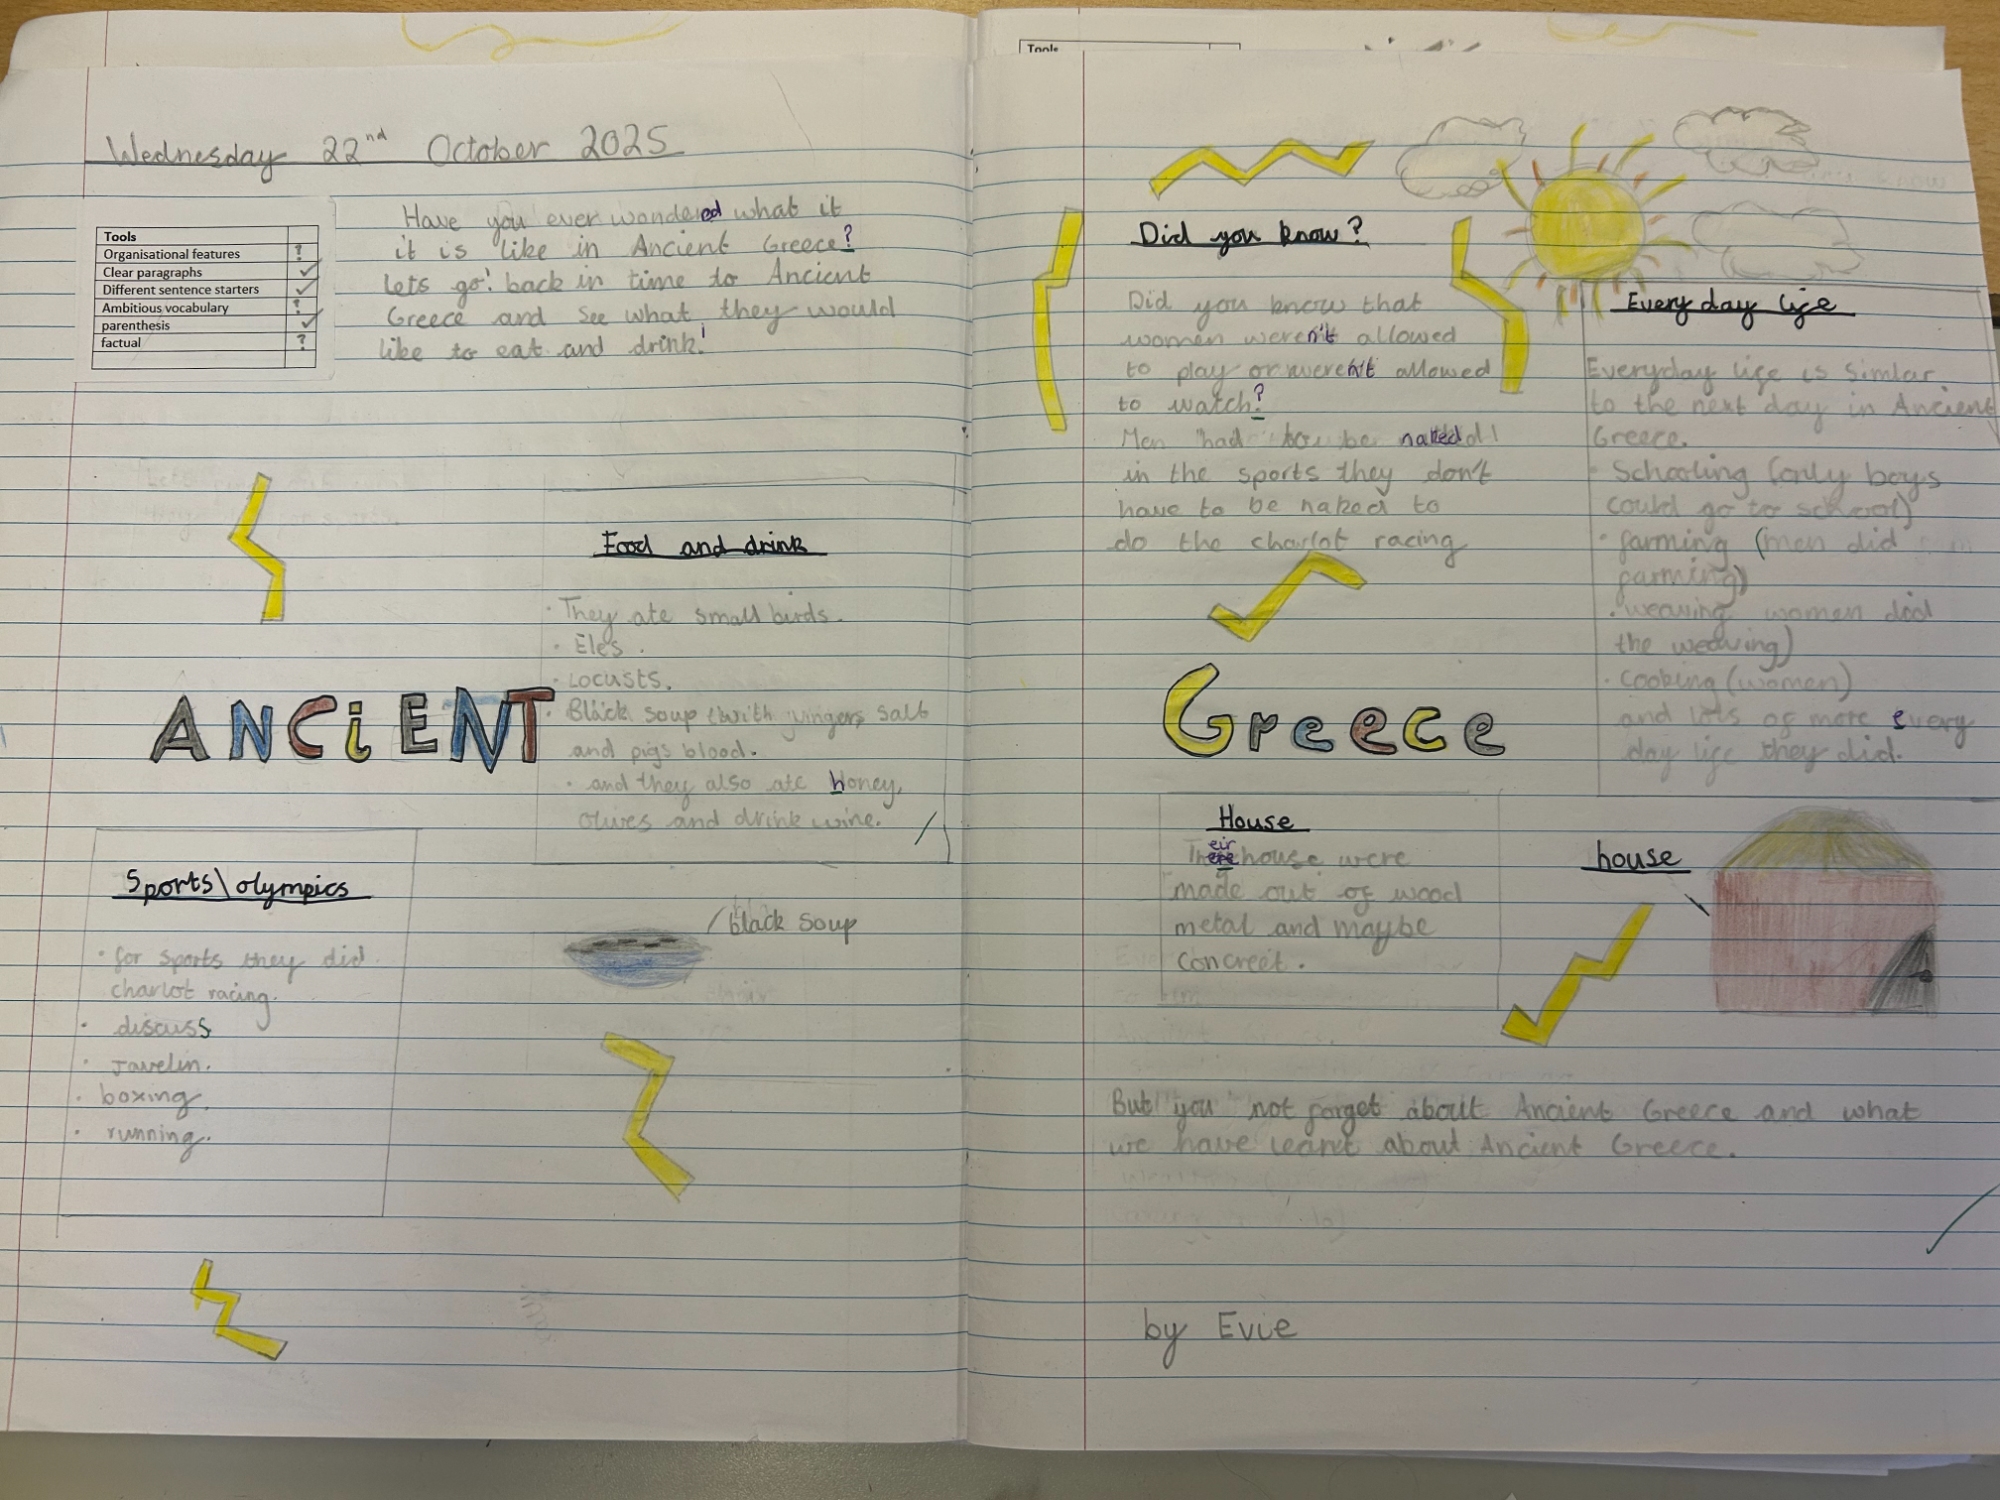 Wednesday 22nd October 2025
Tools
Organisational features ?
Clear paragraphs ✓
Different sentence starters ✓
Ambitious vocabulary ?
parenthesis ✓
factual ?
Have you ever wondered what it
it is like in Ancient Greece?
Lets go! back in time to Ancient
Greece and see what they would
like to eat and drink!
Food and drink
· They ate small birds.
· Eles.
· Locusts.
· Black soup (with
salt
and pigs blood.
· and they also ate honey,
olives and drink wine.
ANCiENT
Sports\olympics
· for sports they did
chariot racing.
· discuss
· Javelin.
· boxing.
· running.
black soup
Tools
Did you know?
Did you know that
women weren't allowed
to play or weren't allowed
to watch?
Men had to be naked
in the sports they don't
have to be naked to
do the chariot racing
Every day life
Everyday life is Simlar
to the next day in Ancient
Greece.
· Schooling (only boys
could go to school)
· farming (men did
farming)
· weaving women did
the weaving)
· cooking (women)
and lots of more every
day life they did.
Greece
House
Their house were
made out of wood
metal and maybe
concreet.
house
But you not forget about Ancient Greece and what
we have learnt about Ancient Greece.
by Evie